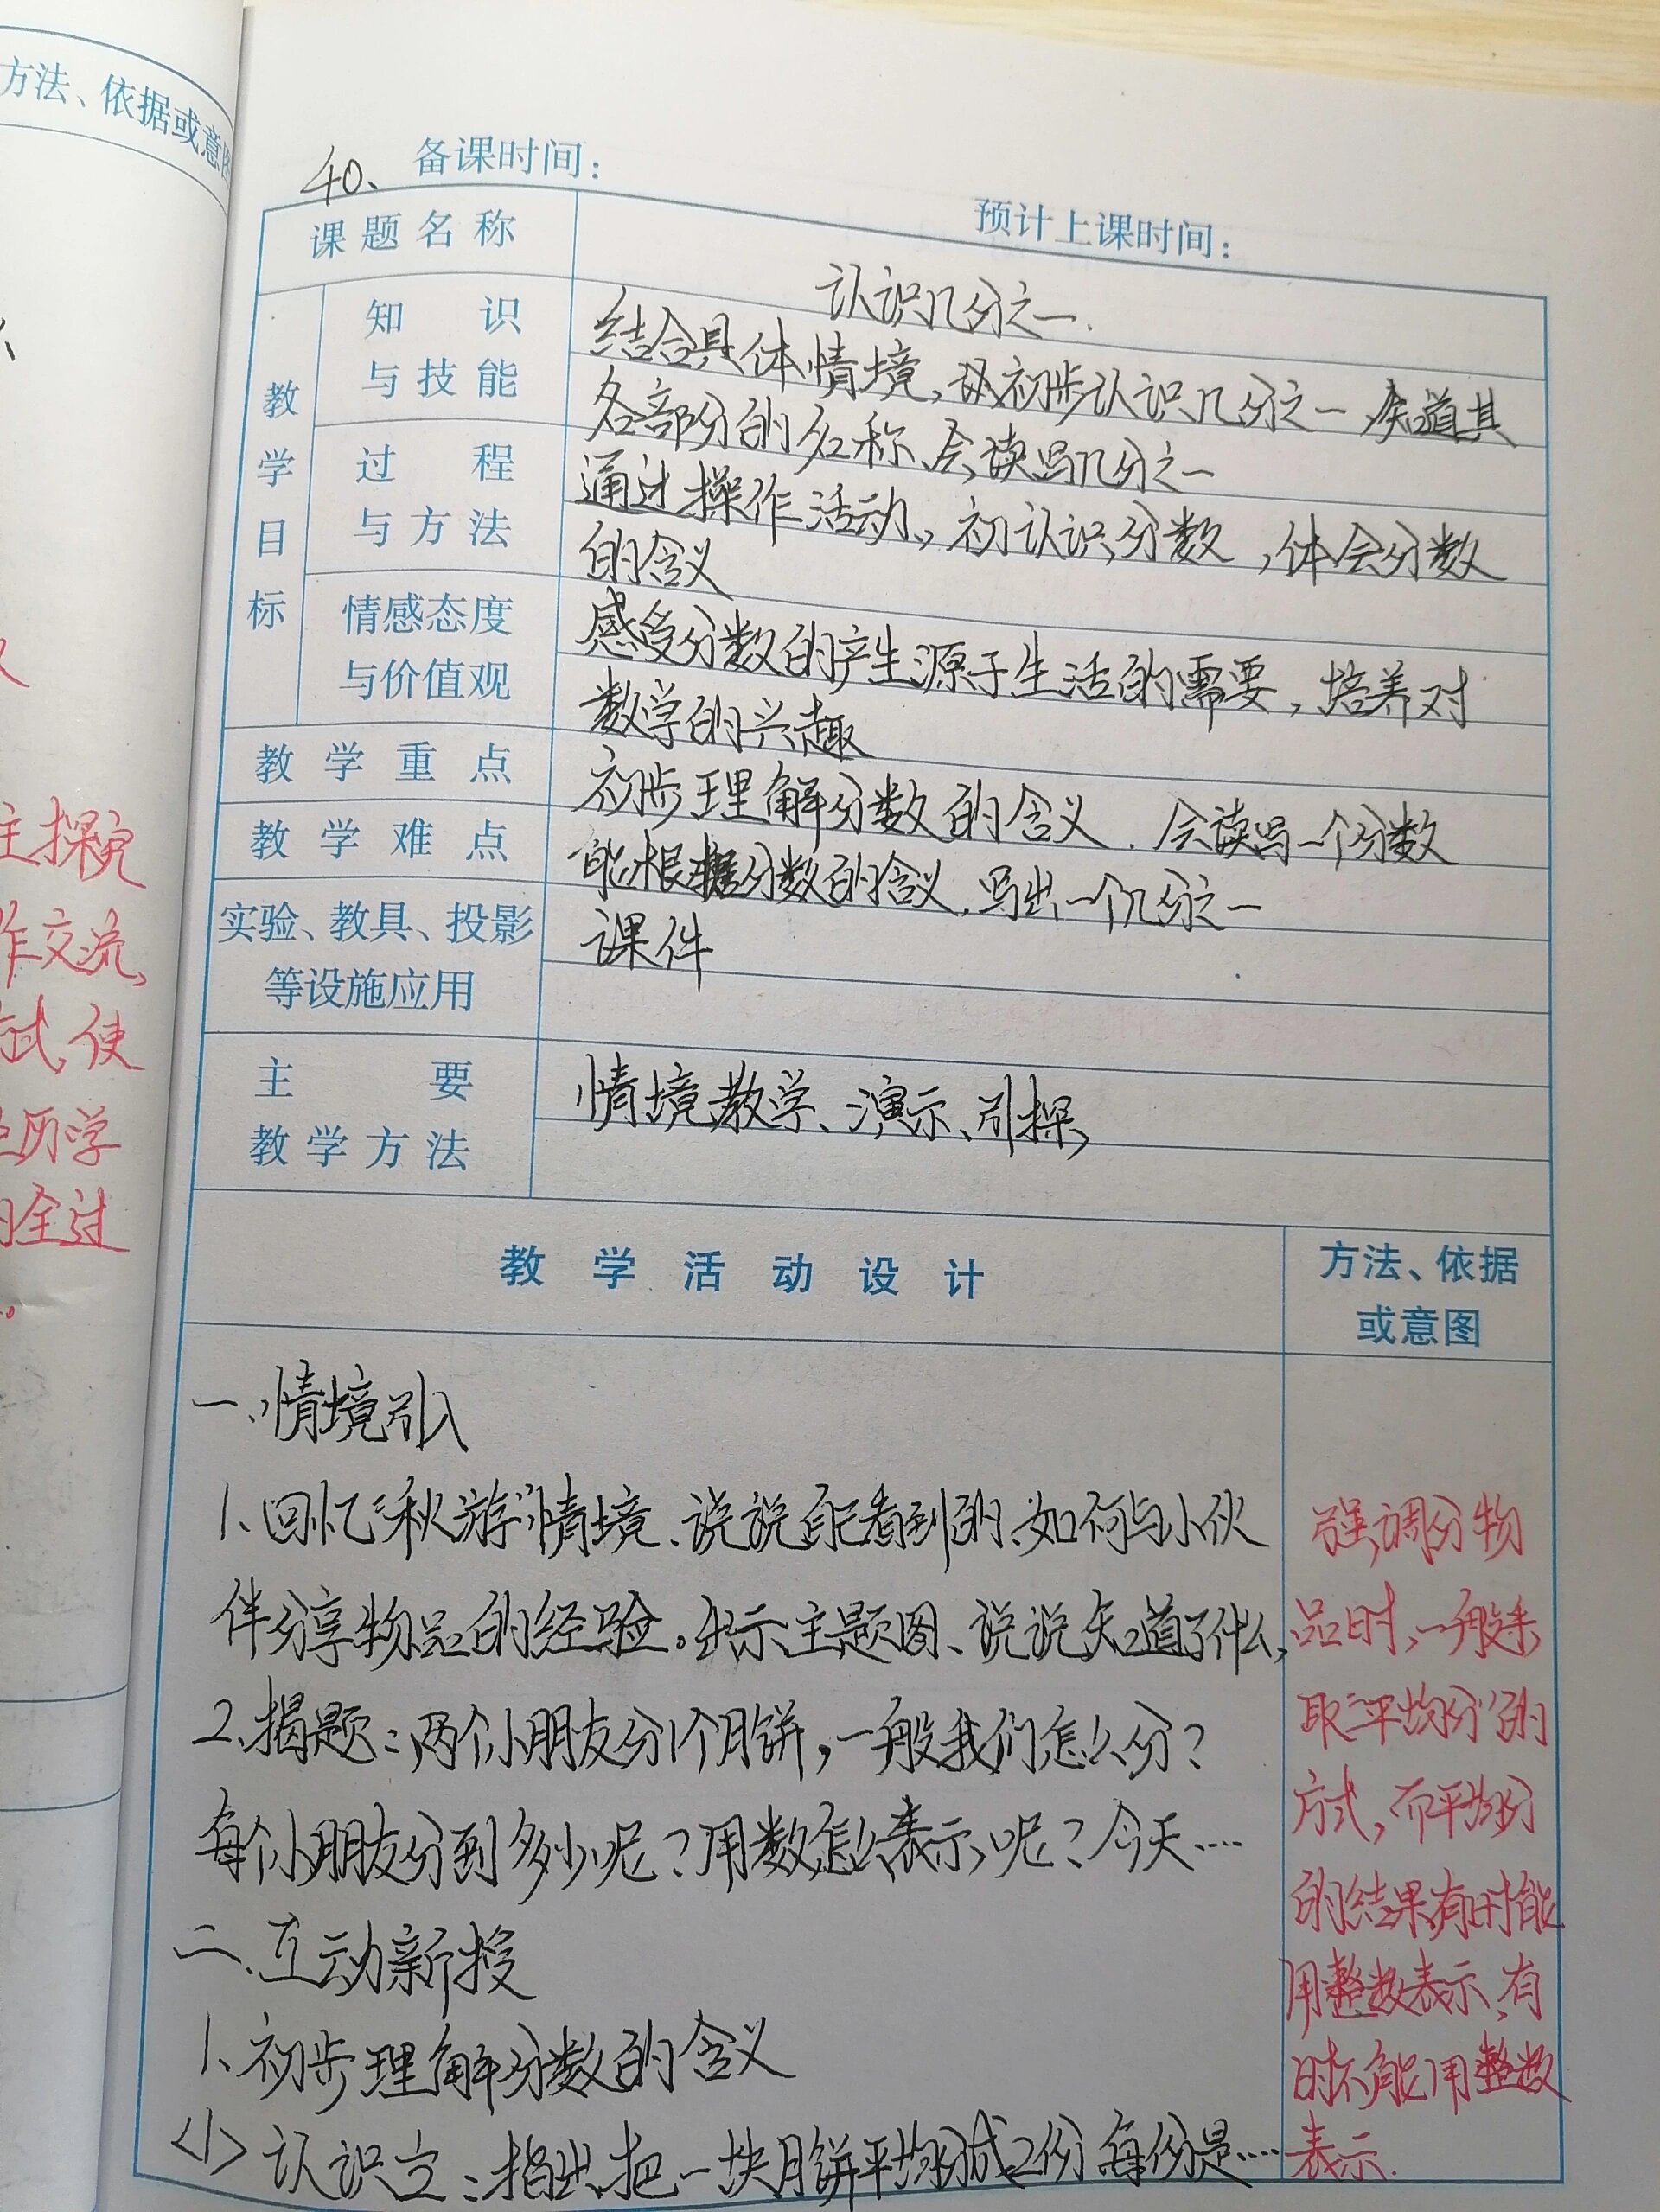 方法、依据或意图
主探究
作交流,
方式,使
经历学
的全过
40、 备课时间:
预计上课时间:
课题名称
认识几分之一.
教学目标
知识
与技能
结合具体情境,初步认识几分之一,知道其
各部分的名称、会读写几分之一
过程
与方法
通过操作活动,初认识分数,体会分数
的含义
情感态度
与价值观
感受分数的产生源于生活的需要,培养对
数学的兴趣
教学重点
初步理解分数的含义.会读写一个分数
教学难点
能根据分数的含义,写出一个几分之一
实验、教具、投影
等设施应用
课件
主要
教学方法
情境教学、演示、引探,
教学活动设计
方法、依据
或意图
一、情境引入
1、回忆“秋游”情境、说说自己看到的、如何与小伙
伴分享物品的经验。出示主题图、说说知道了什么,
2、揭题:两个小朋友分1个月饼,一般我们怎么分?
每个小朋友分到多少呢?用数怎么表示呢?今天....
二、互动新授
1、初步理解分数的含义
<1>认识½:指出,把一块月饼平均分成2份,每份是....
强调分物
品时,一般采
取“平均分”的
方式,而平均分
的结果有时能
用整数表示,有
时不能用整数
表示.